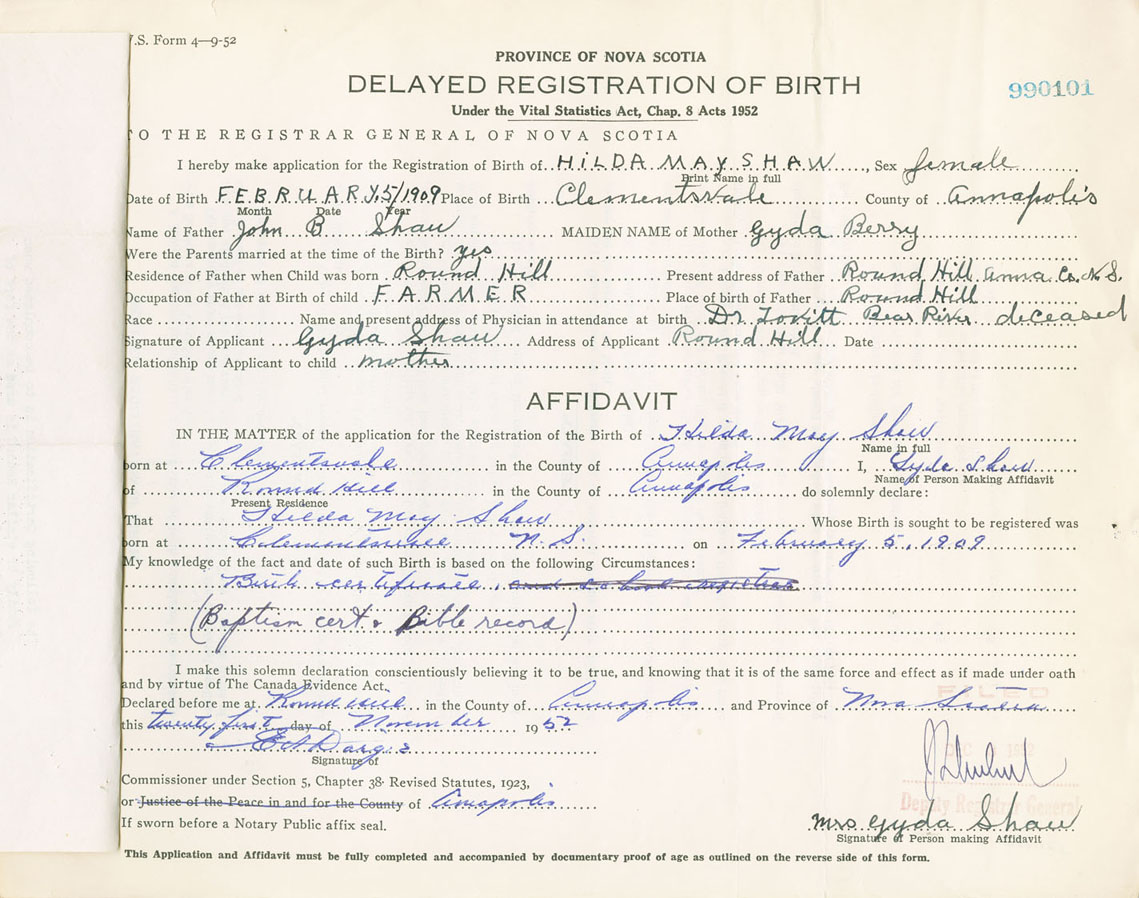 .S. Form 4—9-52
PROVINCE OF NOVA SCOTIA
DELAYED REGISTRATION OF BIRTH
990101
Under the Vital Statistics Act, Chap. 8 Acts 1952
TO THE REGISTRAR GENERAL OF NOVA SCOTIA
I hereby make application for the Registration of Birth of HILDA MAY SHAW, Sex female
Print Name in full
Date of Birth FEBRUARY, 5/1909 Place of Birth Clementsvale County of Annapolis
Month Date Year
Name of Father John B Shaw MAIDEN NAME of Mother Gyda Berry
Were the Parents married at the time of the Birth? yes
Residence of Father when Child was born Round Hill Present address of Father Round Hill Anna Co. N.S.
Occupation of Father at Birth of child FARMER Place of birth of Father Round Hill
Race Name and present address of Physician in attendance at birth Dr Lovitt Bear River deceased
Signature of Applicant Gyda Shaw Address of Applicant Round Hill Date
Relationship of Applicant to child mother
AFFIDAVIT
IN THE MATTER of the application for the Registration of the Birth of Hilda May Shaw
Name in full
born at Clementsvale in the County of Annapolis I, Gyda Shaw
Name of Person Making Affidavit
of Round Hill in the County of Annapolis do solemnly declare:
Present Residence
That Hilda May Shaw Whose Birth is sought to be registered was
born at Clementsvale N.S. on February 5, 1909
My knowledge of the fact and date of such Birth is based on the following Circumstances:
Birth certificate, and school
(Baptism cert & Bible record)
I make this solemn declaration conscientiously believing it to be true, and knowing that it is of the same force and effect as if made under oath
and by virtue of The Canada Evidence Act.
FILED
Declared before me at Round Hill in the County of Annapolis and Province of Nova Scotia
this twenty first day of November 1952
Signature of
Commissioner under Section 5, Chapter 38 Revised Statutes, 1923,
or Justice of the Peace in and for the County of Annapolis
Deputy Registrar General
If sworn before a Notary Public affix seal.
Mrs Gyda Shaw
Signature of Person making Affidavit
This Application and Affidavit must be fully completed and accompanied by documentary proof of age as outlined on the reverse side of this form.